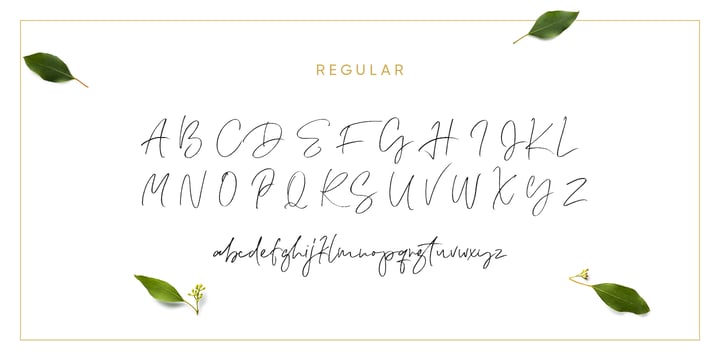 REGULAR
A B C D E F G H I J K L
M N O P Q R S U V W X Y Z
abcdefghijklmnopqrstuvwxyz